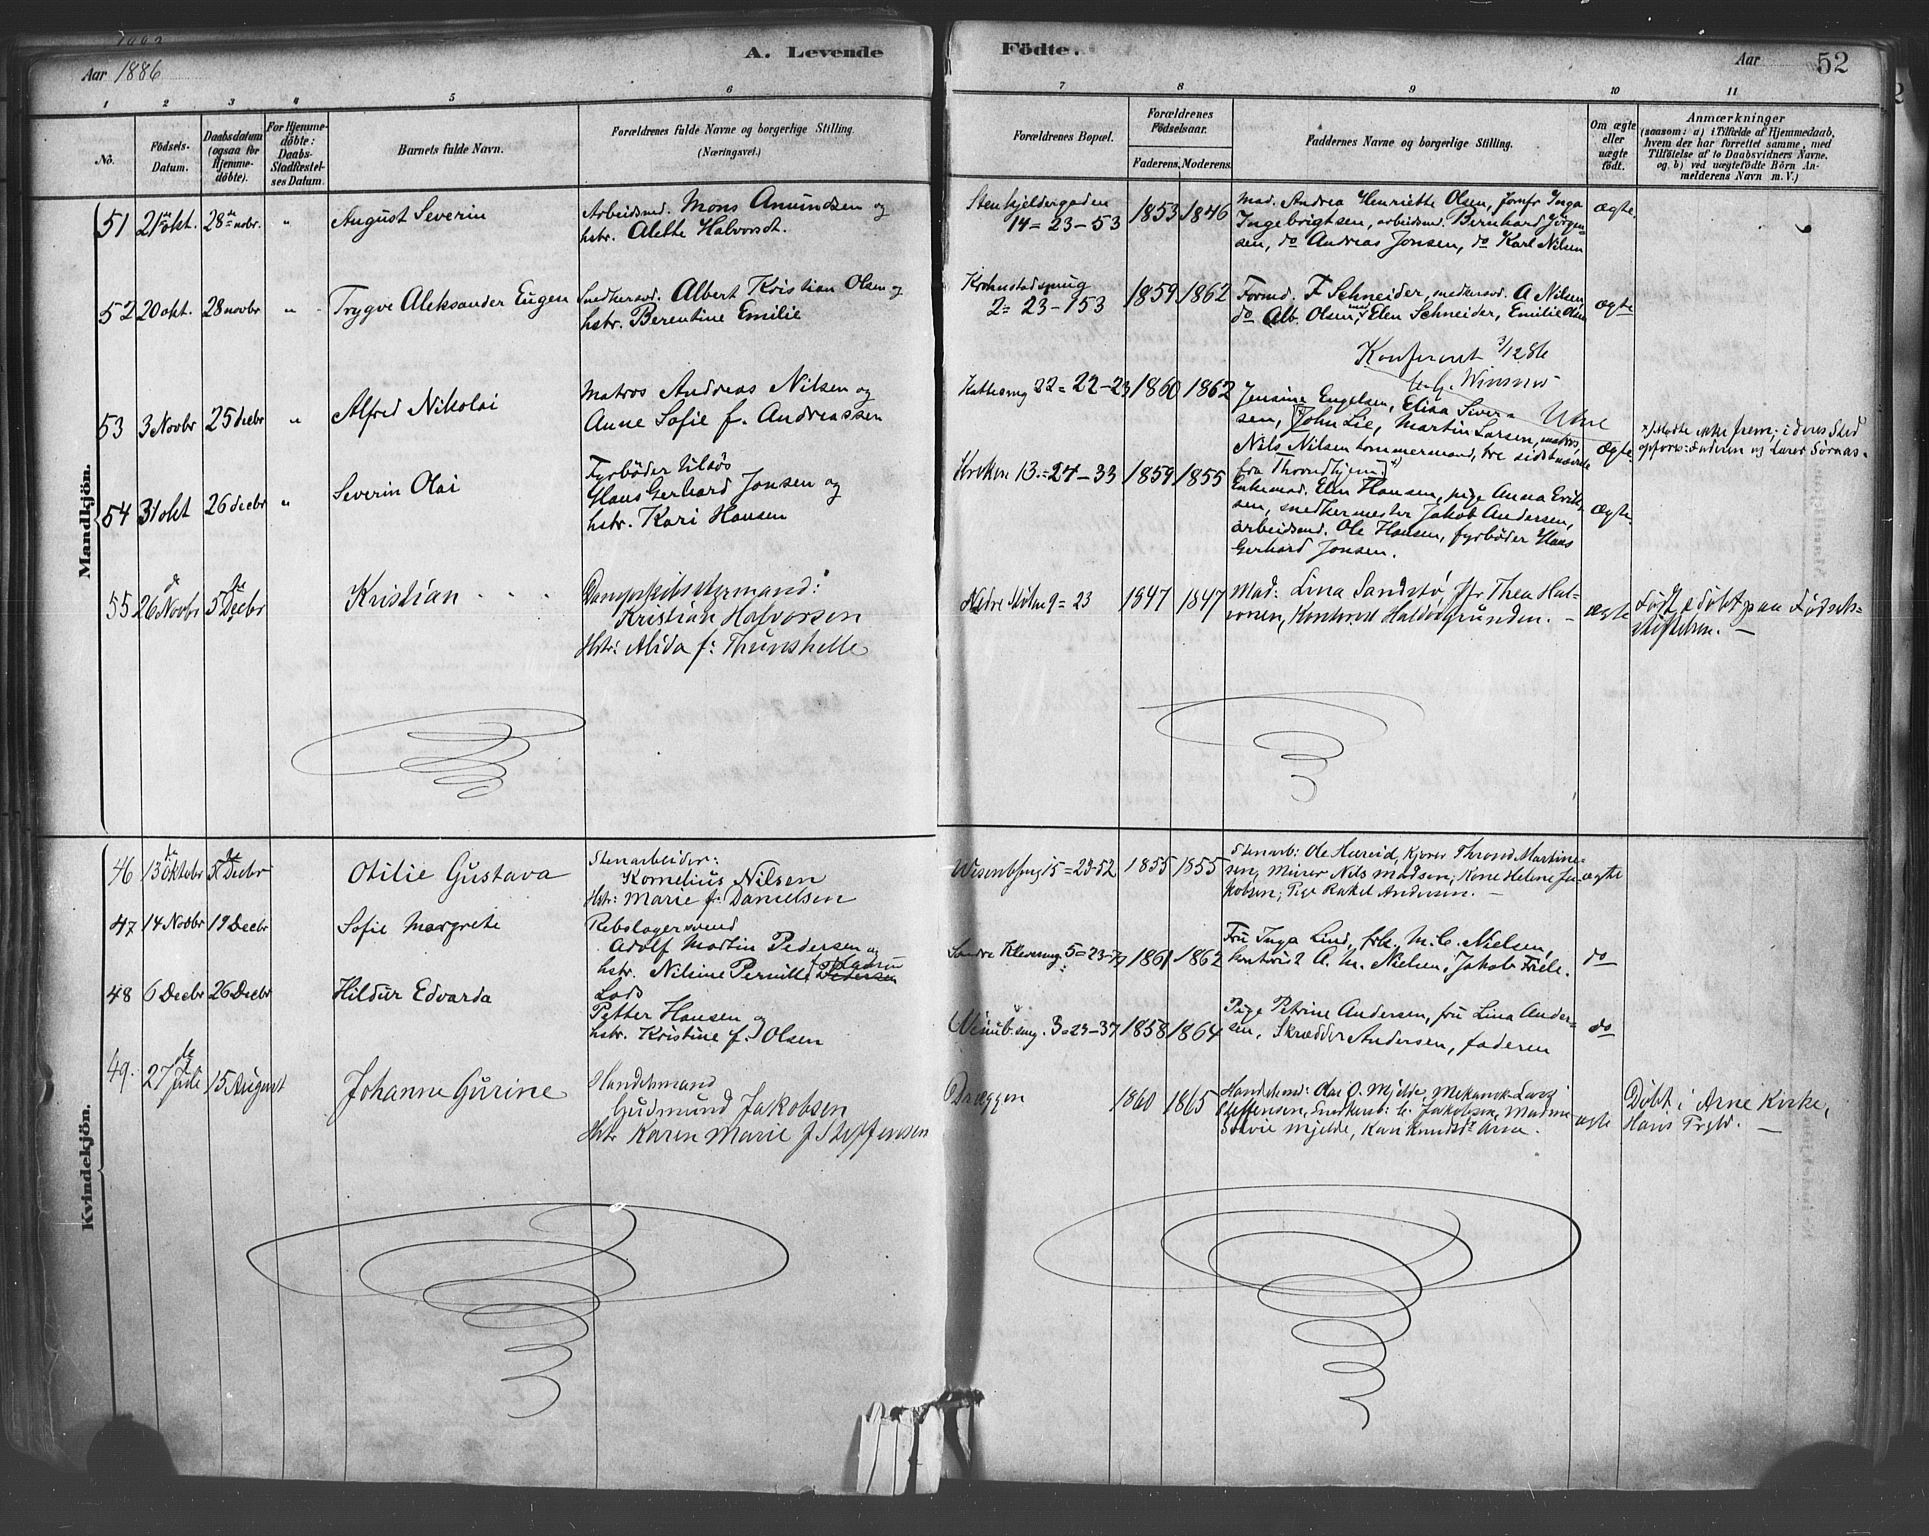 Aar 1886
A. Levende
Födte.
Aar
52
1 2 3 4 5 6 7 8 9 10 11
No.
Födsels-
Datum.
Daabsdatum
(ogsaa for
Hjemme-
döbte).
For Hjemme-
döbte:
Daabs-
Stadfæstel-
ses Datum.
Barnets fulde Navn.
Forældrenes fulde Navne og borgerlige Stilling.
(Næringsvei.)
Forældrenes Bopæl.
Forældrenes
Födselsaar.
Faderens. Moderens.
Faddernes Navne og borgerlige Stilling.
Om ægte
eller
uægte
født.
Anmærkninger
(saasom: a) i Tilfælde af Hjemmedaab,
hvem der har forrettet samme, med
Tilföielse af to Daabsvidners Navne.
og, b) ved uægtefödte Börn An-
melderens Navn m. V.)
Mandkjön.
51 21 okt. 28 novbr. " August Severin
Arbeidsmd. Mons Amundsen og
hstr. Alette Halvorsdt.
Stenkjeldergaden
14 = 23-53
1853 1846
Mad. Andrea Henriette Olsen, Jomfr Inga
Ingebrigtsen, arbeidsmd. Bernhard Jörgen-
sen, do Andreas Jonsen, do Karl Nilsen
ægte.
52 20 okt. 28 novbr " Trygve Aleksander Eugen
Snedkersvd. Albert Kristian Olsen og
hstr. Berentine Emilie
Krohnstadsmug
2 = 23-153
1859 1862
Formd. F Schneider, snedkersvd. A Nilsen,
do Alb. Olsen, Elen Schneider, Emilie Olsen
ægte
Konfereret 3/12 86
53 3 Novbr 25 decbr " Alfred Nikolai
Matros Andreas Nilsen og
Anne Sofie f. Andreassen
Kattesmug 22 = 22-23
1860 1862
Jensine Engelsen, Elisa Siver
sen, John Lie, Martin Larsen, matros,
Nils Nilsen tømmermand, tre sidstnævnte
fra Throndhjem
ægte.
x) Mødte ikke frem; i deres Sted
54 31 okt 26 decbr " Severin Olai
Fyrböder tilsös
Hans Gerhard Jonsen og
hstr. Kari Hansen
Kroken 13 = 24-33
1859 1855
Enkemad. Elen Hansen, pige Anna Erik-
sen, snedkermester Jakob Andersen,
arbeidsmd. Ole Hansen, fyrböder Hans
Gerhard Jonsen.
ægte
55 26 Novbr 5 Decbr Kristian
Dampskibsstyrmand:
Kristian Halvorsen
Hstr: Alida f: Thunshelle
9 = 23
1847 1847
Mad: Lina Sandstø, Jfr Thea Hal-
vorsen,
ægte
Født & døbt paa Fødsels-
stiftelsen. —
Kvindekjön.
46 13 Oktobr 5 Decbr Otilie Gustava
Stenarbeider:
Kornelius Nilsen
Hstr: Marie f. Danielsen
15 = 23-52
1855 1855
Stenarb: Ole Hareid, Kjører Thrond Martine-
sen, Murer Nils Madsen, Kone Helene Ja-
kobsen, Pige Rakel Andersen. —
ægte
47 14 Novbr 19 Decbr Sofie Margrete
Rebslagersvend
Adolf Martin Pedersen og
hstr. Nilsine Pernille
Søndre Klevesmug 5 = 23-79
1861 1862
Fru Inga Lind, frk. M. C. Nielsen,
kontorist A. M. Nielsen, Jakob Friele.
do
48 6 Decbr 26 Decbr Hildur Edvarda
Lods
Petter Hansen og
hstr. Kristine f. Olsen
3 = 23-37
1858 1864
Pige Petrine Andersen, fru Lina Ander-
sen, Skrædder Andersen, faderen
do
49. 27 Juli 15 August Johanne Gurine
Handelsmand
Gudmund Jakobsen
Hstr Karen Marie f Steffensen
Dræggen
1860 1865
Handelsmd: Ole O. Mjelde, Mekanik. Lars
Steffensen, Snedkersv: C. Jakobsen, Madme
Solvie Mjelde, Kari Knudsdt Arne.
ægte
Døbt i Arne Kirke,
Hans Prgld. —